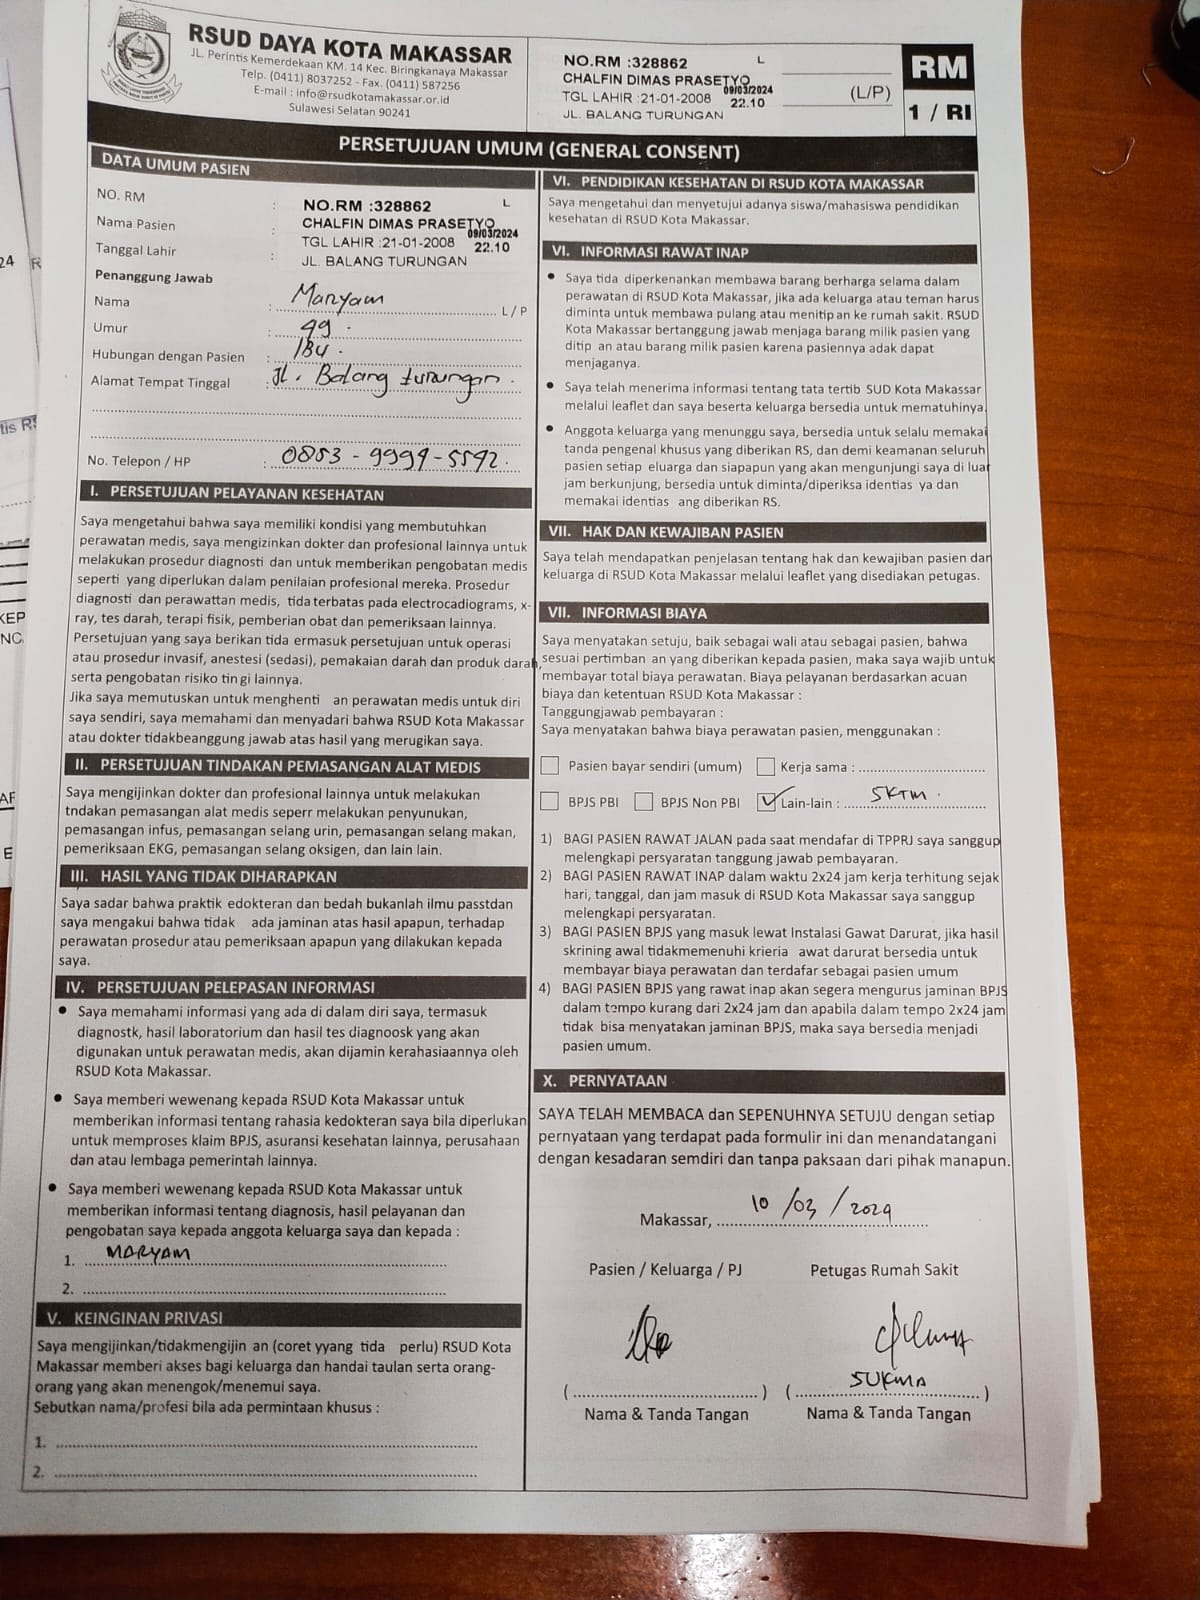 RSUD DAYA KOTA MAKASSAR
JL. Perintis Kemerdekaan KM. 14 Kec. Biringkanaya Makassar
Telp. (0411) 8037252 - Fax. (0411) 587256
E-mail : info@rsudkotamakassar.or.id
Sulawesi Selatan 90241
NO.RM :328862 L
CHALFIN DIMAS PRASETYO
09/03/2024
TGL LAHIR :21-01-2008 22.10
JL. BALANG TURUNGAN
(L/P)
RM
1 / RI
PERSETUJUAN UMUM (GENERAL CONSENT)
DATA UMUM PASIEN
NO. RM :
Nama Pasien :
Tanggal Lahir :
NO.RM :328862 L
CHALFIN DIMAS PRASETYO
09/03/2024
TGL LAHIR :21-01-2008 22.10
JL. BALANG TURUNGAN
Penanggung Jawab
Nama : Maryam L / P
Umur : 49 .
Hubungan dengan Pasien : IBU .
Alamat Tempat Tinggal : Jl. Balang turungan .
No. Telepon / HP : 0853 - 9999 - 5592 .
I. PERSETUJUAN PELAYANAN KESEHATAN
Saya mengetahui bahwa saya memiliki kondisi yang membutuhkan
perawatan medis, saya mengizinkan dokter dan profesional lainnya untuk
melakukan prosedur diagnosti dan untuk memberikan pengobatan medis
seperti yang diperlukan dalam penilaian profesional mereka. Prosedur
diagnosti dan perawattan medis, tida terbatas pada electrocadiograms, x-
ray, tes darah, terapi fisik, pemberian obat dan pemeriksaan lainnya.
Persetujuan yang saya berikan tida ermasuk persetujuan untuk operasi
atau prosedur invasif, anestesi (sedasi), pemakaian darah dan produk darah,
serta pengobatan risiko tin gi lainnya.
Jika saya memutuskan untuk menghenti an perawatan medis untuk diri
saya sendiri, saya memahami dan menyadari bahwa RSUD Kota Makassar
atau dokter tidakbeanggung jawab atas hasil yang merugikan saya.
II. PERSETUJUAN TINDAKAN PEMASANGAN ALAT MEDIS
Saya mengijinkan dokter dan profesional lainnya untuk melakukan
tndakan pemasangan alat medis seperr melakukan penyunukan,
pemasangan infus, pemasangan selang urin, pemasangan selang makan,
pemeriksaan EKG, pemasangan selang oksigen, dan lain lain.
III. HASIL YANG TIDAK DIHARAPKAN
Saya sadar bahwa praktik edokteran dan bedah bukanlah ilmu passtdan
saya mengakui bahwa tidak ada jaminan atas hasil apapun, terhadap
perawatan prosedur atau pemeriksaan apapun yang dilakukan kepada
saya.
IV. PERSETUJUAN PELEPASAN INFORMASI
• Saya memahami informasi yang ada di dalam diri saya, termasuk
diagnostk, hasil laboratorium dan hasil tes diagnoosk yang akan
digunakan untuk perawatan medis, akan dijamin kerahasiaannya oleh
RSUD Kota Makassar.
• Saya memberi wewenang kepada RSUD Kota Makassar untuk
memberikan informasi tentang rahasia kedokteran saya bila diperlukan
untuk memproses klaim BPJS, asuransi kesehatan lainnya, perusahaan
dan atau lembaga pemerintah lainnya.
• Saya memberi wewenang kepada RSUD Kota Makassar untuk
memberikan informasi tentang diagnosis, hasil pelayanan dan
pengobatan saya kepada anggota keluarga saya dan kepada :
1. MARYAM
2.
V. KEINGINAN PRIVASI
Saya mengijinkan/tidakmengijin an (coret yyang tida perlu) RSUD Kota
Makassar memberi akses bagi keluarga dan handai taulan serta orang-
orang yang akan menengok/menemui saya.
Sebutkan nama/profesi bila ada permintaan khusus :
1.
2.
VI. PENDIDIKAN KESEHATAN DI RSUD KOTA MAKASSAR
Saya mengetahui dan menyetujui adanya siswa/mahasiswa pendidikan
kesehatan di RSUD Kota Makassar.
VI. INFORMASI RAWAT INAP
• Saya tida diperkenankan membawa barang berharga selama dalam
perawatan di RSUD Kota Makassar, jika ada keluarga atau teman harus
diminta untuk membawa pulang atau menitip an ke rumah sakit. RSUD
Kota Makassar bertanggung jawab menjaga barang milik pasien yang
ditip an atau barang milik pasien karena pasiennya adak dapat
menjaganya.
• Saya telah menerima informasi tentang tata tertib SUD Kota Makassar
melalui leaflet dan saya beserta keluarga bersedia untuk mematuhinya.
• Anggota keluarga yang menunggu saya, bersedia untuk selalu memakai
tanda pengenal khusus yang diberikan RS, dan demi keamanan seluruh
pasien setiap eluarga dan siapapun yang akan mengunjungi saya di luar
jam berkunjung, bersedia untuk diminta/diperiksa identias ya dan
memakai identias ang diberikan RS.
VII. HAK DAN KEWAJIBAN PASIEN
Saya telah mendapatkan penjelasan tentang hak dan kewajiban pasien dan
keluarga di RSUD Kota Makassar melalui leaflet yang disediakan petugas.
VII. INFORMASI BIAYA
Saya menyatakan setuju, baik sebagai wali atau sebagai pasien, bahwa
sesuai pertimban an yang diberikan kepada pasien, maka saya wajib untuk
membayar total biaya perawatan. Biaya pelayanan berdasarkan acuan
biaya dan ketentuan RSUD Kota Makassar :
Tanggungjawab pembayaran :
Saya menyatakan bahwa biaya perawatan pasien, menggunakan :
Pasien bayar sendiri (umum) Kerja sama :
BPJS PBI BPJS Non PBI ✓ Lain-lain : SKTM .
1) BAGI PASIEN RAWAT JALAN pada saat mendafar di TPPRJ saya sanggup
melengkapi persyaratan tanggung jawab pembayaran.
2) BAGI PASIEN RAWAT INAP dalam waktu 2x24 jam kerja terhitung sejak
hari, tanggal, dan jam masuk di RSUD Kota Makassar saya sanggup
melengkapi persyaratan.
3) BAGI PASIEN BPJS yang masuk lewat Instalasi Gawat Darurat, jika hasil
skrining awal tidakmemenuhi krieria awat darurat bersedia untuk
membayar biaya perawatan dan terdafar sebagai pasien umum
4) BAGI PASIEN BPJS yang rawat inap akan segera mengurus jaminan BPJS
dalam tempo kurang dari 2x24 jam dan apabila dalam tempo 2x24 jam
tidak bisa menyatakan jaminan BPJS, maka saya bersedia menjadi
pasien umum.
X. PERNYATAAN
SAYA TELAH MEMBACA dan SEPENUHNYA SETUJU dengan setiap
pernyataan yang terdapat pada formulir ini dan menandatangani
dengan kesadaran semdiri dan tanpa paksaan dari pihak manapun.
Makassar, 10 / 03 / 2024
Pasien / Keluarga / PJ Petugas Rumah Sakit
SUKMA
( ) ( )
Nama & Tanda Tangan Nama & Tanda Tangan